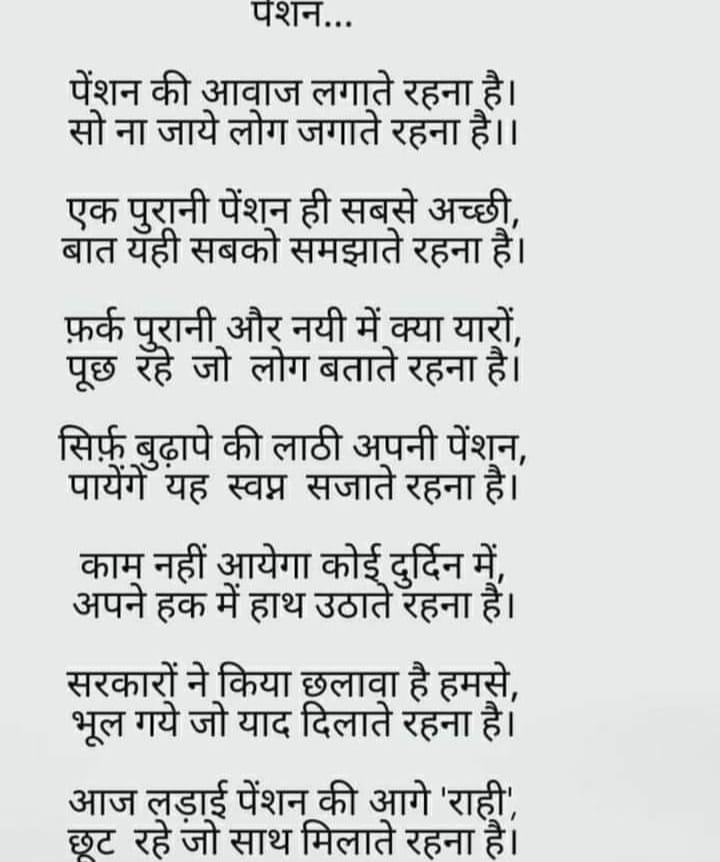 पेंशन...
पेंशन की आवाज लगाते रहना है।
सो ना जाये लोग जगाते रहना है।।
एक पुरानी पेंशन ही सबसे अच्छी,
बात यही सबको समझाते रहना है।
फ़र्क पुरानी और नयी में क्या यारों,
पूछ रहे जो लोग बताते रहना है।
सिर्फ़ बुढ़ापे की लाठी अपनी पेंशन,
पायेंगें यह स्वप्न सजाते रहना है।
काम नहीं आयेगा कोई दुर्दिन में,
अपने हक में हाथ उठाते रहना है।
सरकारों ने किया छलावा है हमसे,
भूल गये जो याद दिलाते रहना है।
आज लड़ाई पेंशन की आगे 'राही',
छूट रहे जो साथ मिलाते रहना है।